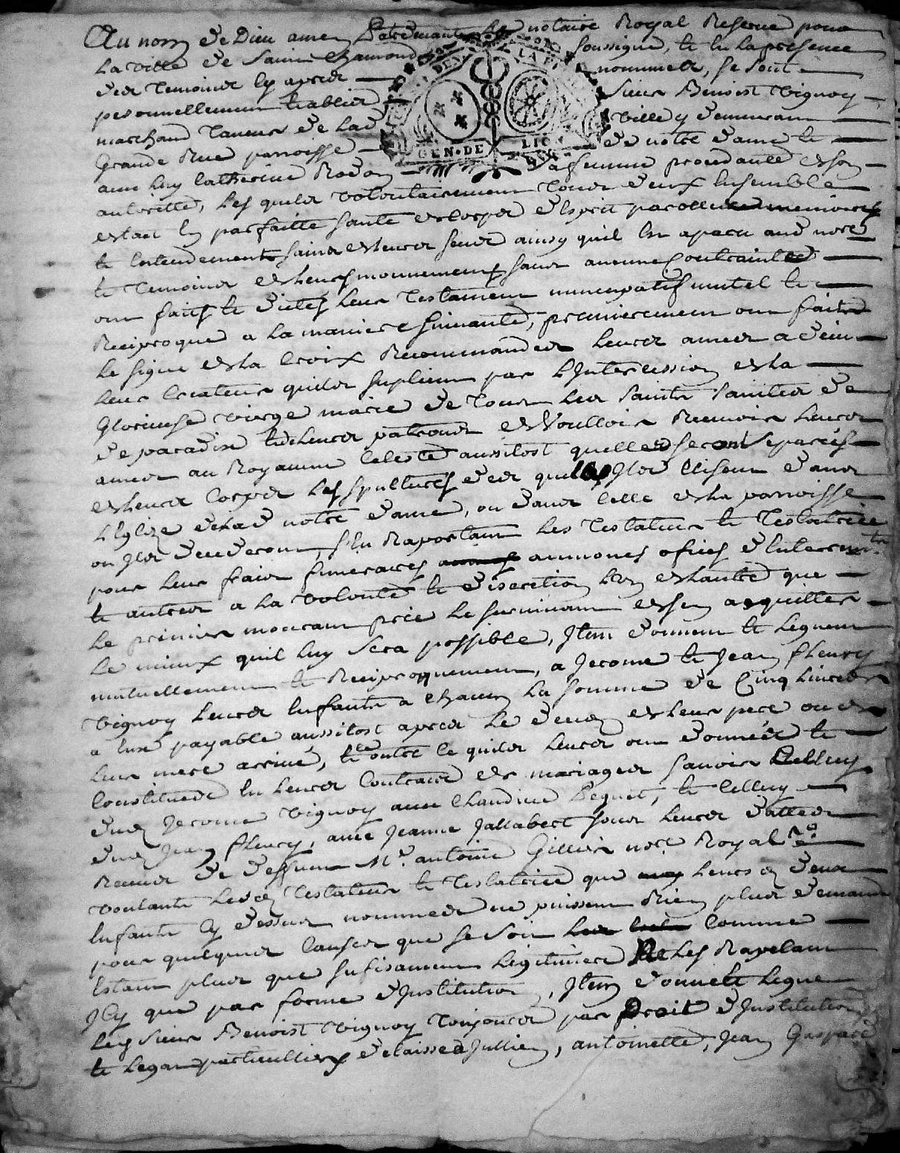 Au nom de Dieu amen Pardevant Le notaire Royal Reservé pour
La ville de Saint Chamond soussigné, et en la presence
des Temoins cy apres nommés, se sont
personnellement establis sieur Benoist Vignoy
marchand Taneur de Lad ville y demeurant
Grande Rue parroisse de notre dame et
avec luy Catherine sa femme procedante de son
autorité, Lesquels volontairement Tous deux Ensemble
estant en parfaitte santé de corps d'esprit parolle memoire
et Entendement sains de leurs sens ainsy quil Est aparu aud notre
et Temoins de leurs mouvement sans aucune Contrainte
ont fait et dittes leur Testament nuncupatif mutuel et
Reciproque a la maniere suivante, premierement ont fait
le signe de la Croix Recommandes leurs ames a dieu
leur Createur quils suplient par L'Intercession de la
Glorieuse vierge marie de Tous les saints saintes de
de paradis et de leurs patrons de Voulloir Recevoir leurs
ames au Royaume Celeste aussitost quelles seront separées
de leurs Corps Les sepultures des quels Ils Elisent dans
L'Eglize de lad notre dame, ou dans celle de la parroisse
ou Ils decederont, s'En Raportant Les Testateur et Testatrice
pour leur frais funeraires aumones ofices d'Enterrement
et autres a la volonté et discretion L'un de Lautre que
le premier mourant prie Le survivant de s'en acquitter
Le mieux quil luy sera possible, Item donnent et Leguent
mutuellement et Reciproquement, a Jerome et Jean fleury
Vignoy leurs Enfants a Chacun La somme de Cinq Livres
a Eux payable aussitost apres Le deces de leur pere ou de
leur mere arrivé, et outre ce quils leurs ont donnés et
Constitués En leurs Contracts de mariages savoir Celluy
dud Jerome Vignoy avec Claudine Peguet, et Celluy
dud Jean fleury avec Jeanne Jallabert sous leurs dattes
Receus de deffunt Mr. antoine Gillier notre Royal
voulants Lesd Testateur et Testatrice que leursd deux
Enfants cy dessus nommés ne puissent Rien plus demander
pour quelques Causes que se soit comme
Estant plus que sufisament Legitimés Les Rapelant
Icy que par forme d'Institution, Item donne et Legue
Led sieur Benoist Vignoy Toujours par Droit d'Institution
et Legat particullier delaisse a Jullien, antoinette, Jean Gaspard
GEN. DE LION